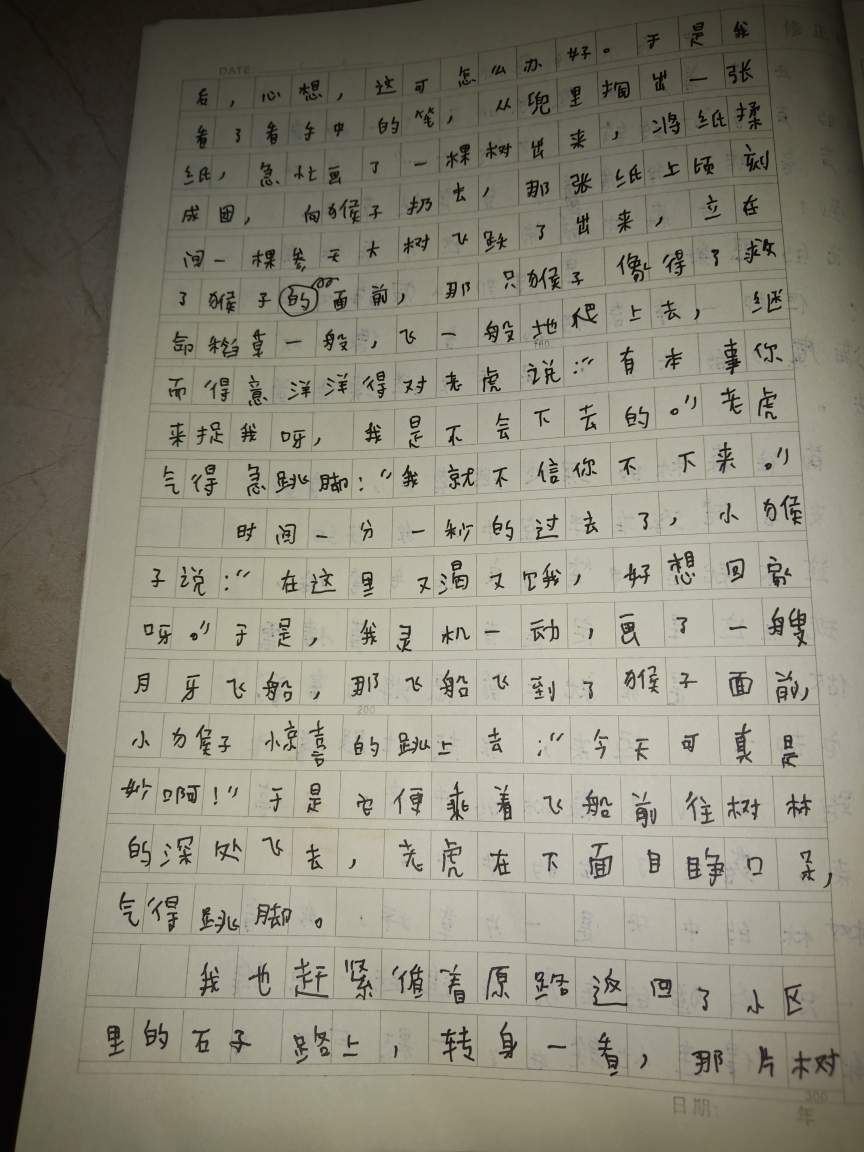 DATE
后，心想，这可怎么办好。于是我
看了看手中的笔，从兜里掏出一张
纸，急忙画了一棵树出来，将纸揉
成团，向猴子扔去，那张纸上顷刻
间一棵参天大树飞跃了出来，立在
了猴子的面前，那只猴子像得了救
命稻草一般，飞一般地爬上去，继
而得意洋洋得对老虎说：“有本事你
来捉我呀，我是不会下去的。”老虎
气得急跳脚：“我就不信你不下来。”
时间一分一秒的过去了，小猴
子说：“在这里又渴又饿，好想回家
呀。”于是，我灵机一动，画了一艘
月牙飞船，那飞船飞到了猴子面前，
200
小猴子惊喜的跳上去：“今天可真是
妙啊！”于是它便乘着飞船前往树林
的深处飞去，老虎在下面目睁口呆，
气得跳脚。
我也赶紧循着原路返回了小区
里的石子路上，转身一看，那片树
300
日期： 年